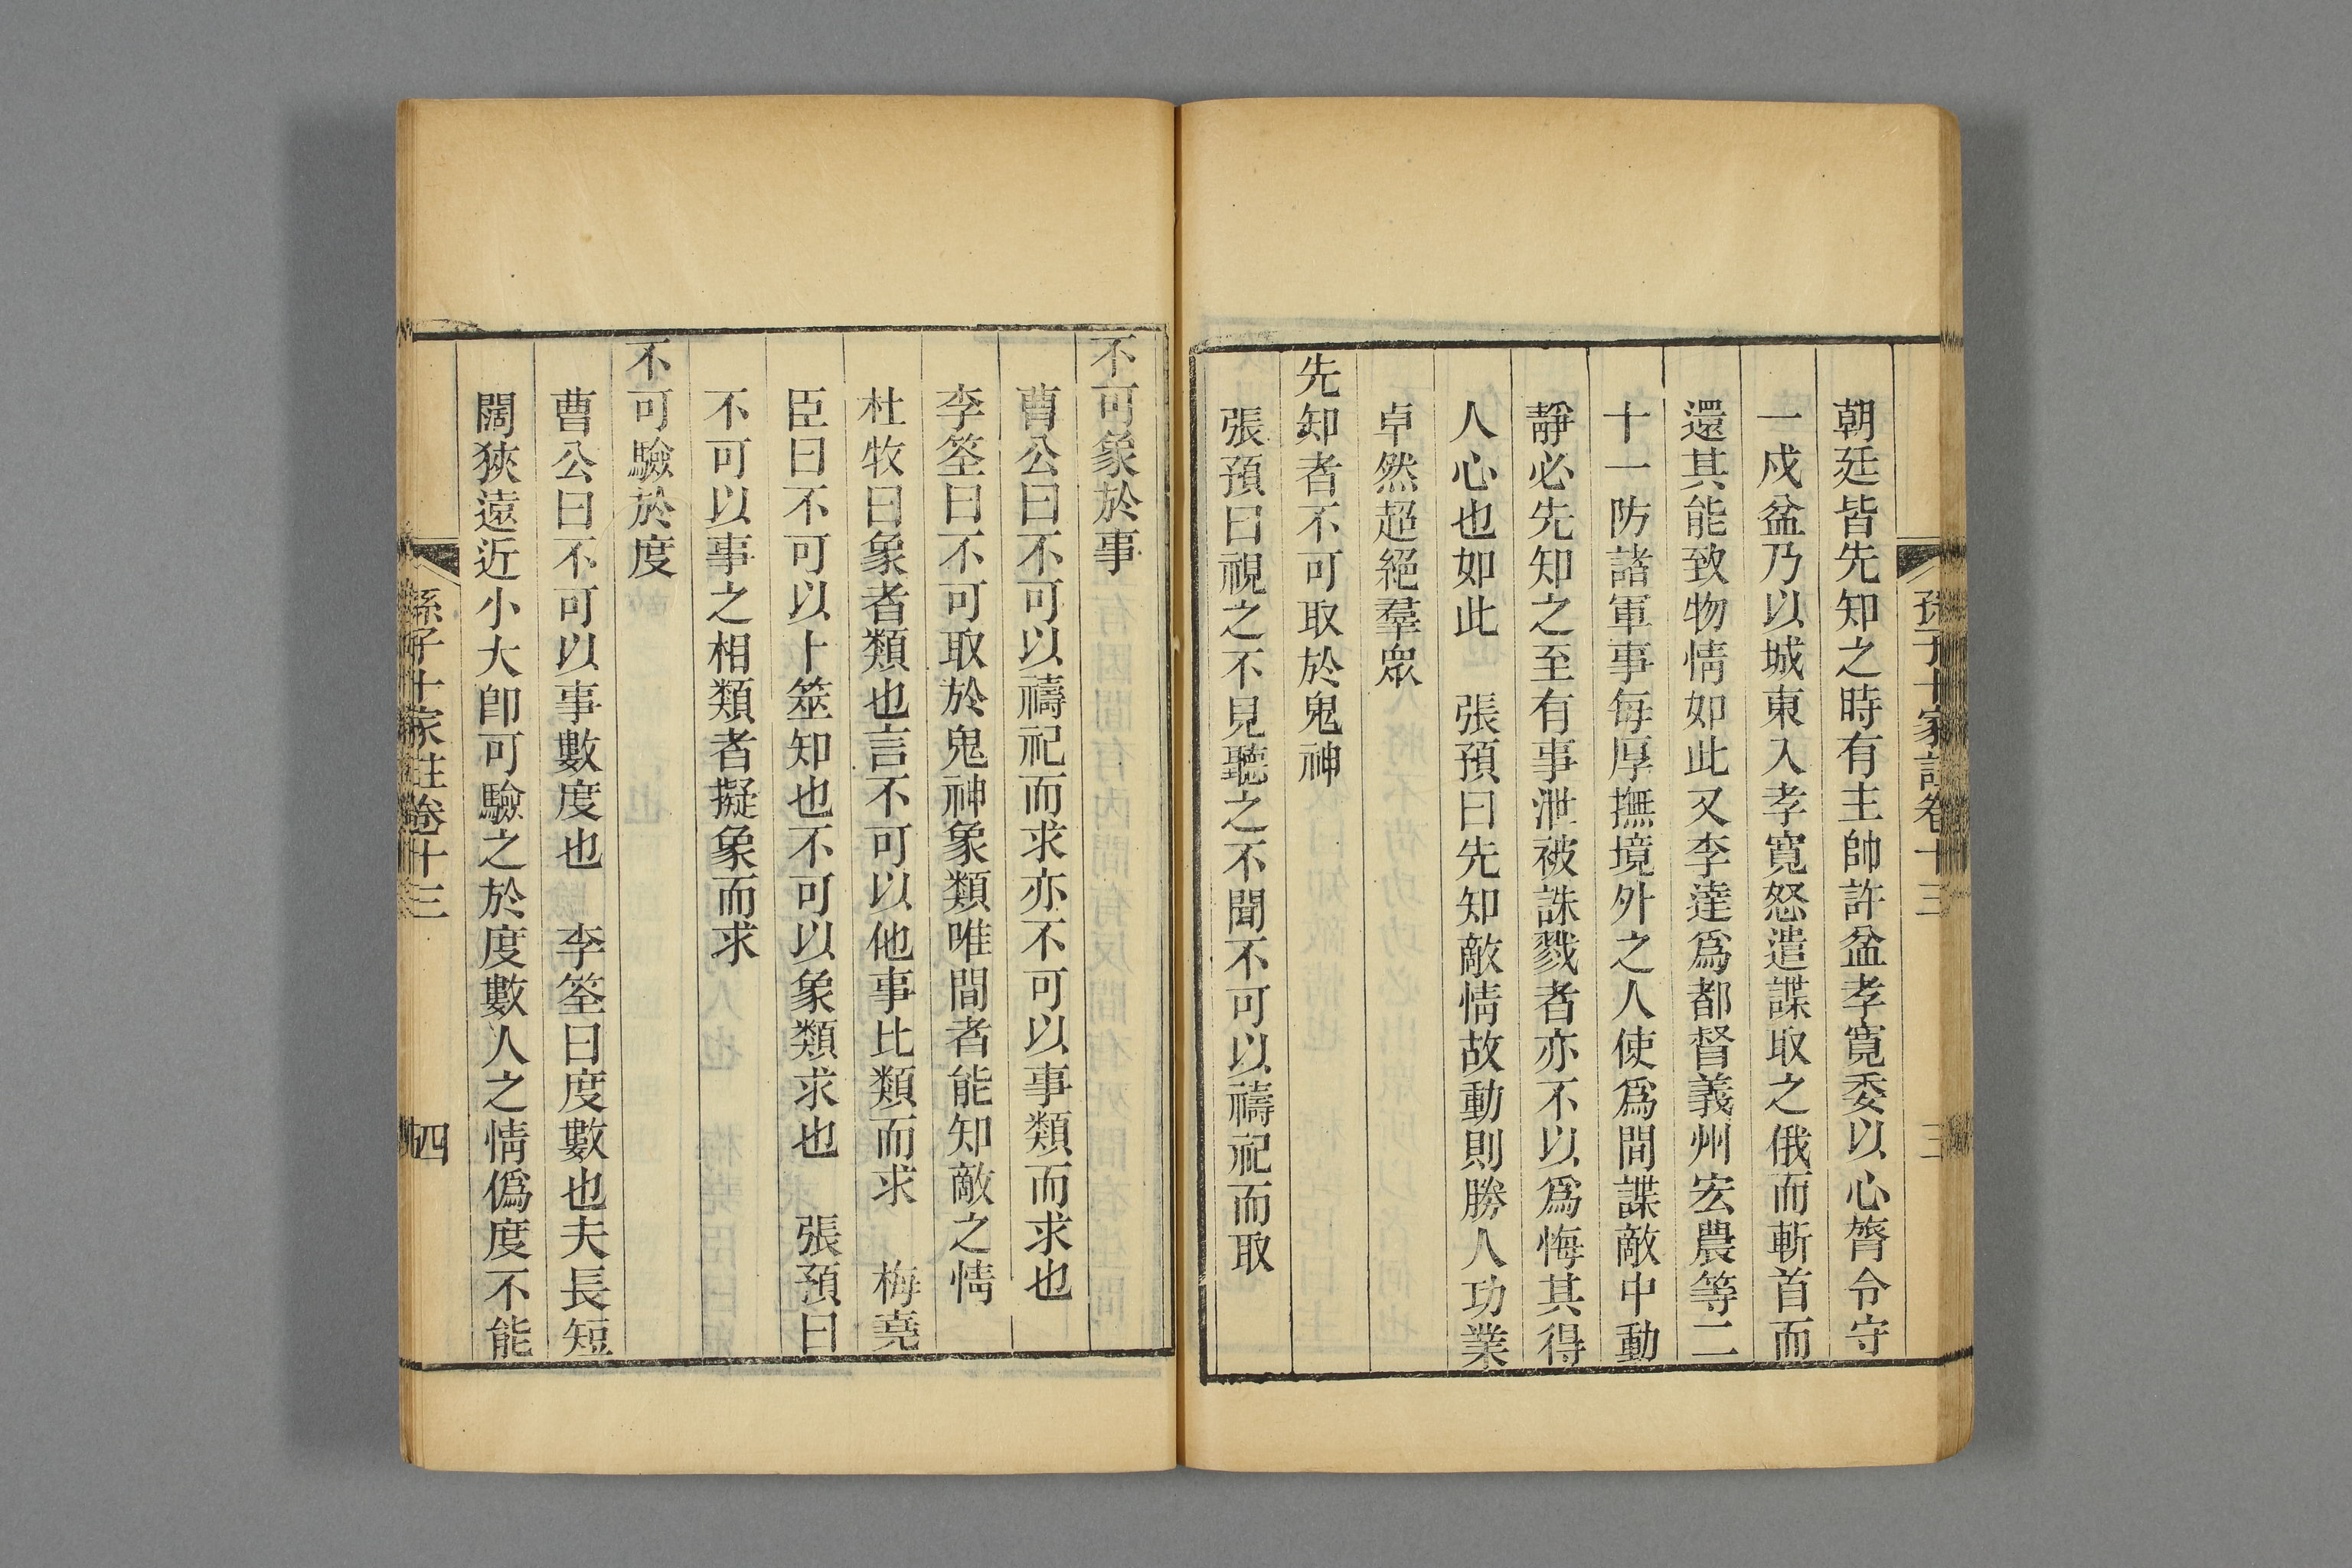 孫子十家註卷十三
三
朝廷皆先知之時有主帥許盆孝寬委以心膂令守
一戍盆乃以城東入孝寬怒遣諜取之俄而斬首而
還其能致物情如此又李達爲都督義州宏農等二
十一防諸軍事每厚撫境外之人使爲間諜敵中動
靜必先知之至有事泄被誅戮者亦不以爲悔其得
人心也如此　張預曰先知敵情故動則勝人功業
卓然超絕羣眾
先知者不可取於鬼神
張預曰視之不見聽之不聞不可以禱祀而取
不可象於事
曹公曰不可以禱祀而求亦不可以事類而求也
李筌曰不可取於鬼神象類唯間者能知敵之情
杜牧曰象者類也言不可以他事比類而求　梅堯
臣曰不可以卜筮知也不可以象類求也　張預曰
不可以事之相類者擬象而求
不可驗於度
曹公曰不可以事數度也　李筌曰度數也夫長短
闊狹遠近小大卽可驗之於度數人之情僞度不能
孫子十家註卷十三
四